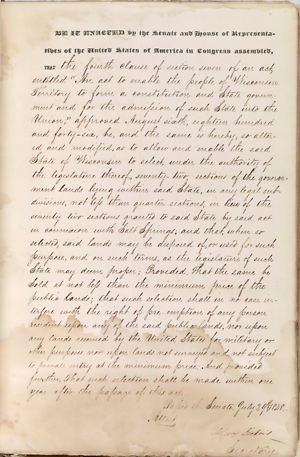 BE IT ENACTED by the Senate and House of Representa-
tives of the United States of America in Congress assembled,
THAT the fourth clause of section seven of an act,
entitled "An act to enable the people of Wisconsin
Territory to form a constitution and State govern-
ment and for the admission of such State into the
Union," approved August sixth, eighteen hundred
and forty-six, be, and the same is hereby, so alter-
ed and modified, as to allow and enable the said
State of Wisconsin to select, under the authority of
the legislature thereof, seventy-two, sections of the govern-
ment lands lying within said State, in any legal sub-
divisions, not less than quarter sections, in lieu of the
seventy two sections granted to said State by said act
in connexion with Salt Springs, and that, when so
selected, said lands may be disposed of, or used for such
purpose, and on such terms, as the legislature of such
State may deem proper; Provided, That the same be
sold at not less than the minimum price of the
public lands; that such selection shall in no case in-
terfere with the right of pre-emption of any person
resident upon any of the said public lands, nor upon
any lands reserved by the United States for military or
other purposes nor upon lands not surveyed and not subject
to private entry at the minimum price. And provided
further, That such selection shall be made within one
year after the passage of this act.
Passed the Senate, July 29th 1848.
Attest,
Secretary